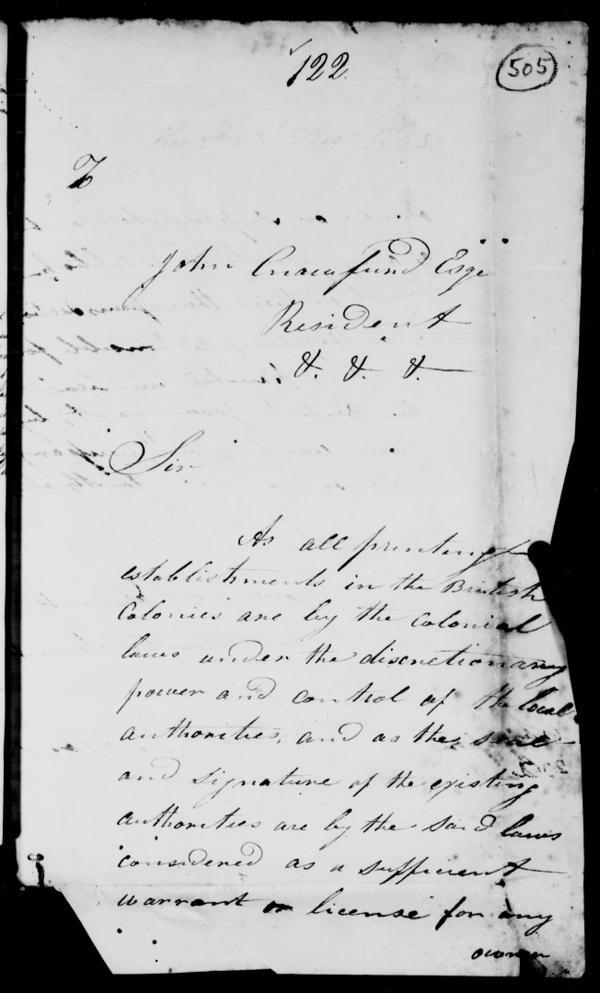 122
505
To
John Crawfurd Esqe
Resident
&. &. &.
Sir
As all printing
establishments in the British
Colonies are by the Colonial
laws under the discretionary
power and control of the local
authorities, and as the seal
and signature of the existing
authorities are by the said laws
considered as a sufficient
warrant or license for any
owner